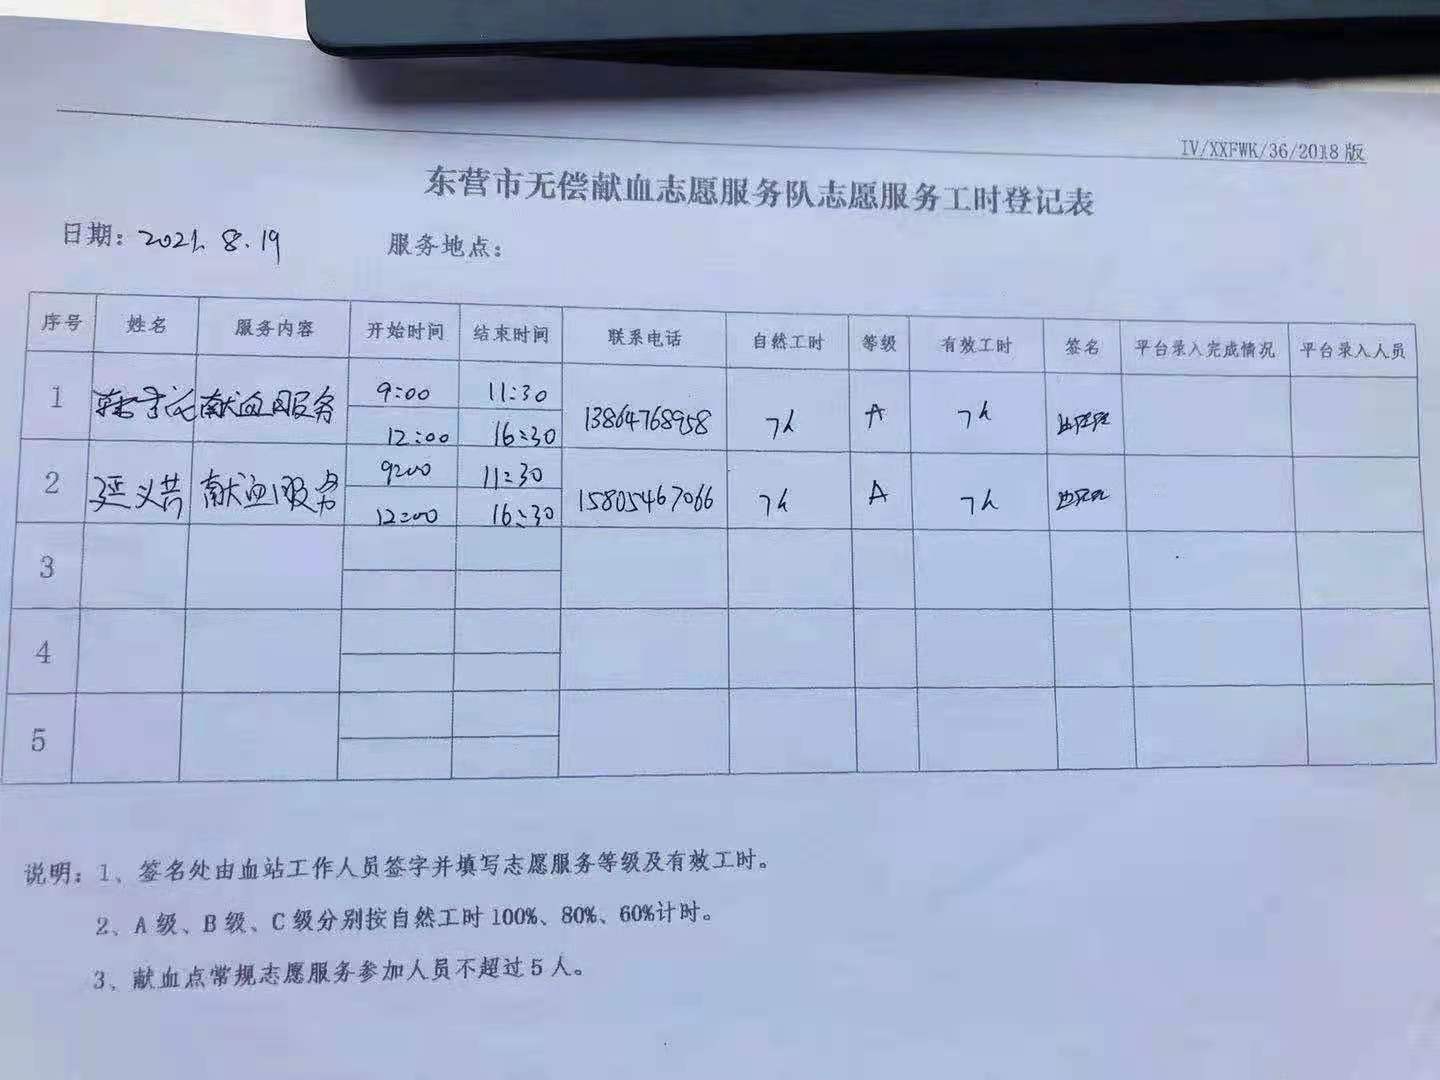 IV/XXFWK/36/2018版
东营市无偿献血志愿服务队志愿服务工时登记表
日期: 2021.8.19 服务地点:
序号 姓名 服务内容 开始时间 结束时间 联系电话 自然工时 等级 有效工时 签名 平台录入完成情况 平台录入人员
1 献血服务 9:00 11:30 13864768958 7h A 7h
12:00 16:30
2 延义芳 献血服务 9:00 11:30 15805467066 7h A 7h
12:00 16:30
3
4
5
说明: 1、签名处由血站工作人员签字并填写志愿服务等级及有效工时。
2、A级、B级、C级分别按自然工时100%、80%、60%计时。
3、献血点常规志愿服务参加人员不超过5人。